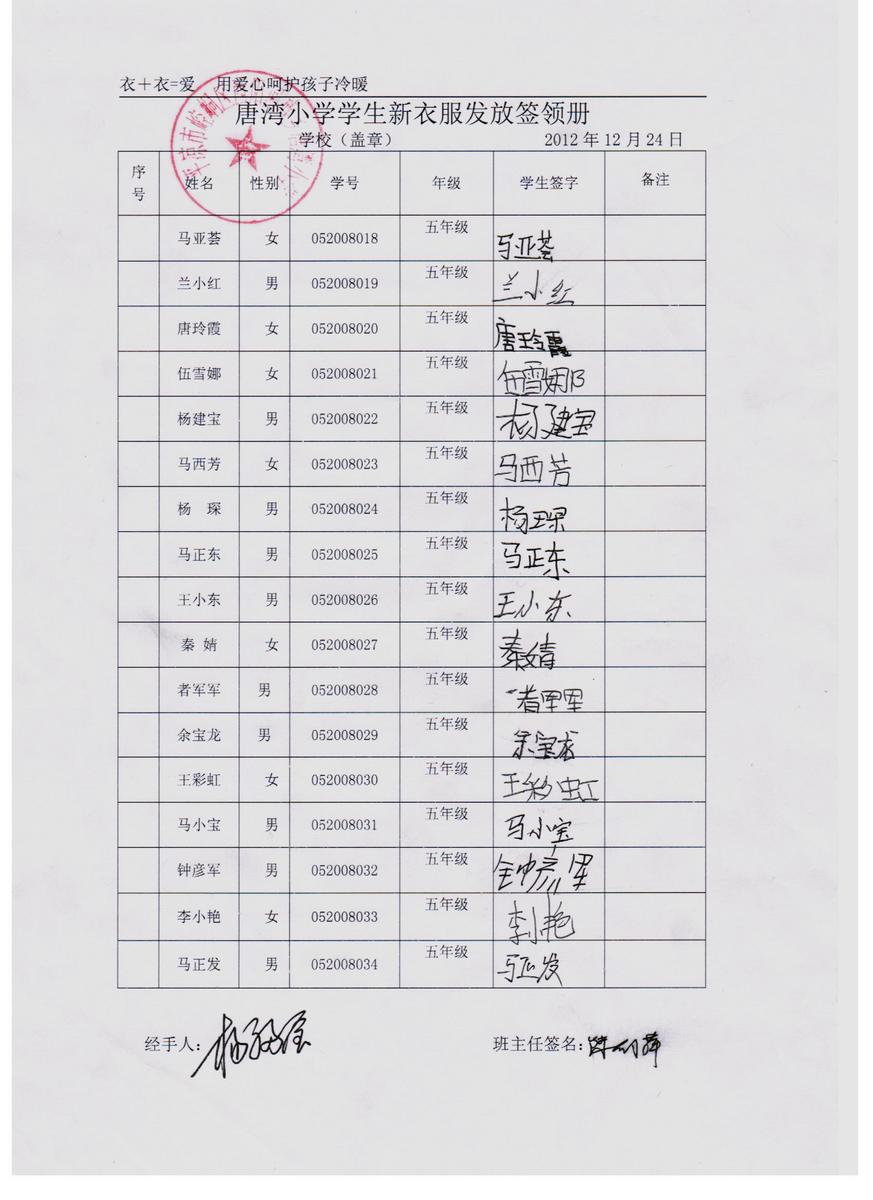 衣＋衣=爱 用爱心呵护孩子冷暖
唐湾小学学生新衣服发放签领册
学校（盖章） 2012 年 12 月 24 日
序号 姓名 性别 学号 年级 学生签字 备注
马亚荟 女 052008018 五年级 马亚荟
兰小红 男 052008019 五年级 兰小红
唐玲霞 女 052008020 五年级 唐玲霞
伍雪娜 女 052008021 五年级 伍雪娜
杨建宝 男 052008022 五年级 杨建宝
马西芳 女 052008023 五年级 马西芳
杨 琛 男 052008024 五年级 杨琛
马正东 男 052008025 五年级 马正东
王小东 男 052008026 五年级 王小东
秦 婧 女 052008027 五年级 秦婧
者军军 男 052008028 五年级 者军军
余宝龙 男 052008029 五年级 余宝龙
王彩虹 女 052008030 五年级 王彩虹
马小宝 男 052008031 五年级 马小宝
钟彦军 男 052008032 五年级 钟彦军
李小艳 女 052008033 五年级 李小艳
马正发 男 052008034 五年级 马正发
经手人： 班主任签名：